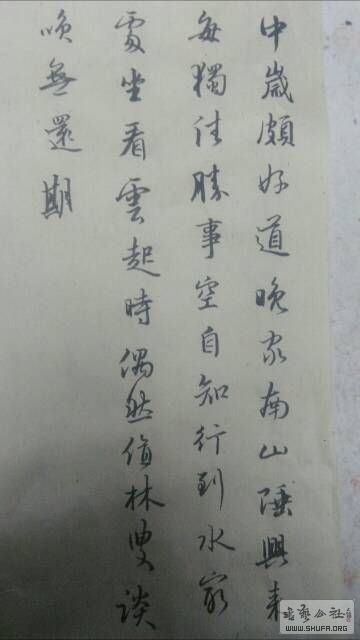 中歲頗好道晚家南山陲興来
每獨往勝事空自知行到水窮
處坐看雲起時偶然值林叟談
咲無還期
书艺公社
WWW.SHUFA.ORG